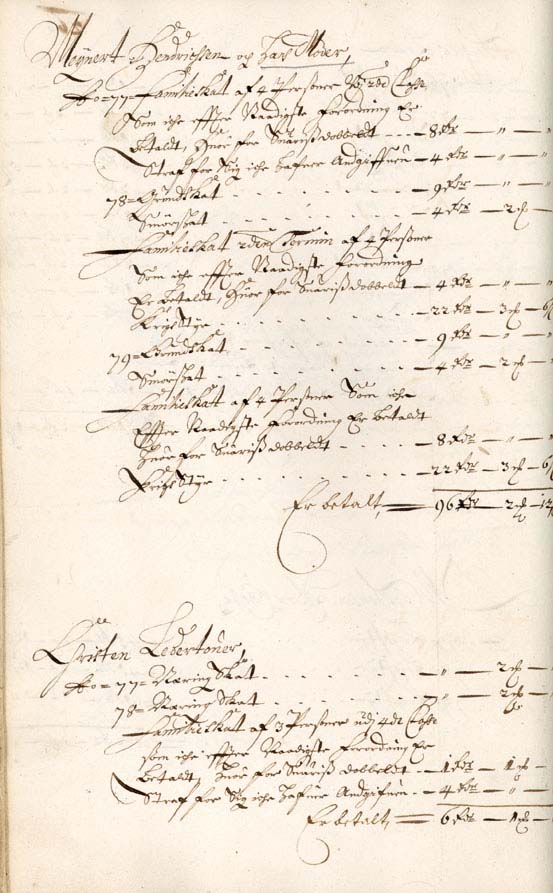 Meÿnert Hendrichsen og Hans Moder,
Ao = 77 = Familieskat af 4 Persner
Som iche effter Naadigste Forordning Er
betaldt, Huor for Suaris dobbeldt - - - 8 Rdr — " — "
Straf for Sig iche hafuer Andgiffuen - 4 Rdr — " — "
78 = Grundskat - - - - - - 9 Rdr — " — "
Smörskat - - - - - - 4 Rdr — 2
Familieskat 2den Termin af 4 Persner
Som iche effter Naadigste Forordning
Er betaldt, Huor for Suaris dobbeldt - 4 Rdr — " — "
Krigs Styr - - - - - - 22 Rdr — 3 — 6
79 = Grundskat - - - - - - 9 Rdr — " — "
Smörskat - - - - - - 4 Rdr — 2 — "
Familieskat af 4 Persner Som iche
Effter Naadigste Forordning Er betaldt
Huor for Suaris dobbeldt - - - 8 Rdr — " — "
Krigs Styr - - - - - - 22 Rdr — 3 — 6
Er betalt, = 96 Rdr — 2 — 12
Christen Ledertouer,
Ao = 77 = Næring Skat - - - - - — " — 2
78 = Næring Skat - - - - - — " — 2
Familieskat af 3 Persner udj 4de Classe
som iche effter Naadigste Forordning Er
betaldt, Huor for Suaris dobbeldt - 1 Rdr — 1
Straf for Sig iche hafuer Andgifuen - 4 Rdr — "
Er betalt, = 6 Rdr — 1